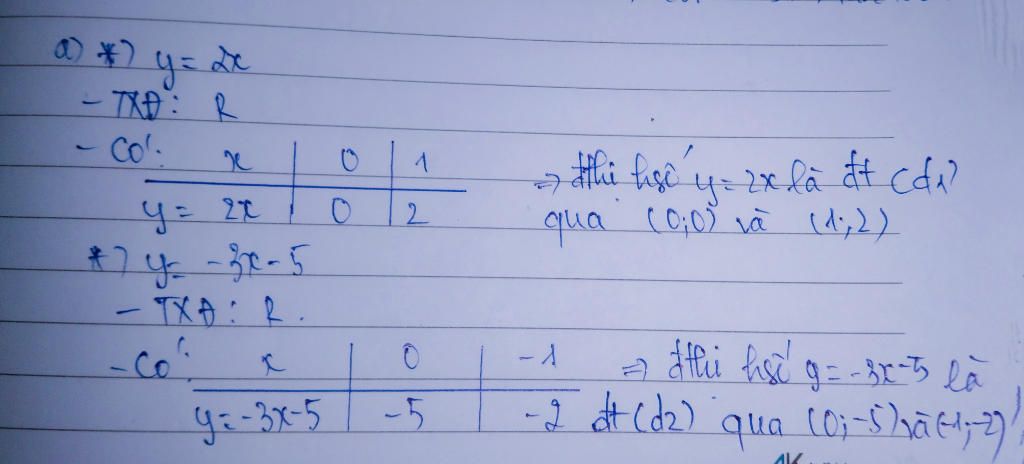 a) *) y = 2x
- TXĐ: R
- Có: x | 0 | 1
y = 2x | 0 | 2
=> đthị hsố y = 2x là đt (d1)
qua (0;0) và (1;2)
*) y = -3x-5
- TXĐ: R.
- Có: x | 0 | -1
y=-3x-5 | -5 | -2
=> đthị hsố y = -3x-5 là
đt (d2) qua (0;-5) và (-1;-2)